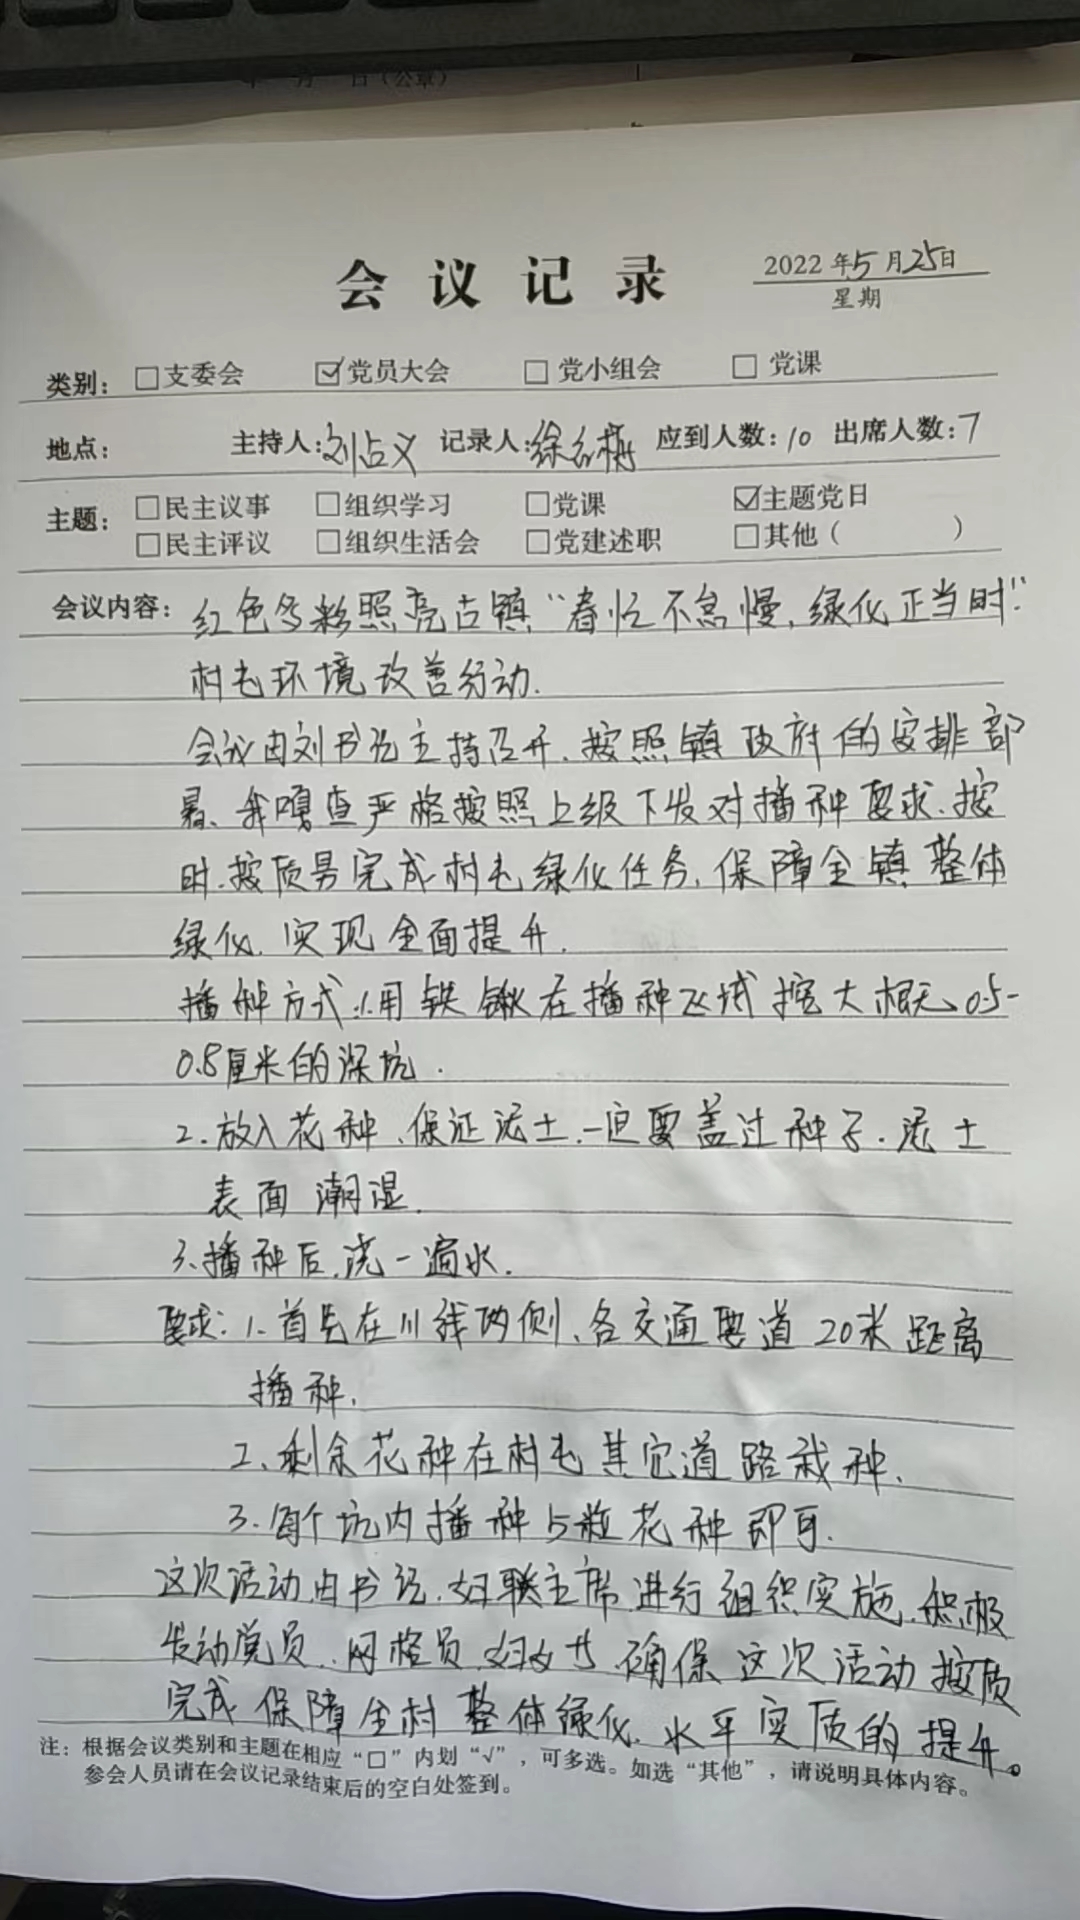 年 月 日(公章)
会议记录
2022年5月25日
星期
类别: □支委会 ☑党员大会 □党小组会 □党课
地点: 主持人:刘占义 记录人:徐 梅 应到人数:10 出席人数:7
主题: □民主议事 □组织学习 □党课 ☑主题党日
□民主评议 □组织生活会 □党建述职 □其他( )
会议内容: 红色多彩照亮古镇“春忙不怠慢,绿化正当时”
村屯环境改善行动.
会议由刘书记主持召开.按照镇政府的安排部
署、我嘎查严格按照上级下发对播种要求.按
时.按质 完成村屯绿化任务,保障全镇整体
绿化.实现全面提升.
播种方式:1.用铁锹在播种区域挖大概0.5-
0.8厘米的深坑.
2.放入花种、保证泥土.一定要盖过种子.泥土
表面潮湿.
3.播种后.浇一遍水.
要求:1.首先在111线两侧、各交通要道20米距离
播种.
2、剩余花种在村屯其它道路栽种.
3.每个坑内播种5粒花种即可.
这次活动由书记.妇联主席进行组织实施.积极
发动党员.网格员.妇女 .确保这次活动按质
完成保障全村整体绿化.水平实质的提升。
注:根据会议类别和主题在相应“□”内划“√”,可多选。如选“其他”,请说明具体内容。
参会人员请在会议记录结束后的空白处签到。